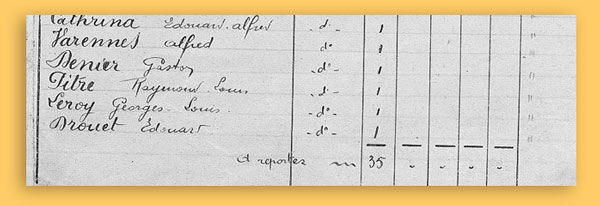 Cathrina Edouard. alfred -d°- 1
Varennes alfred d° 1
Denier Gaston -d°- 1
Titre Raymond. Louis -d°- 1
Leroy Georges. Louis. -d°- 1
Drouet Edouard -d°- 1
A reporter 35